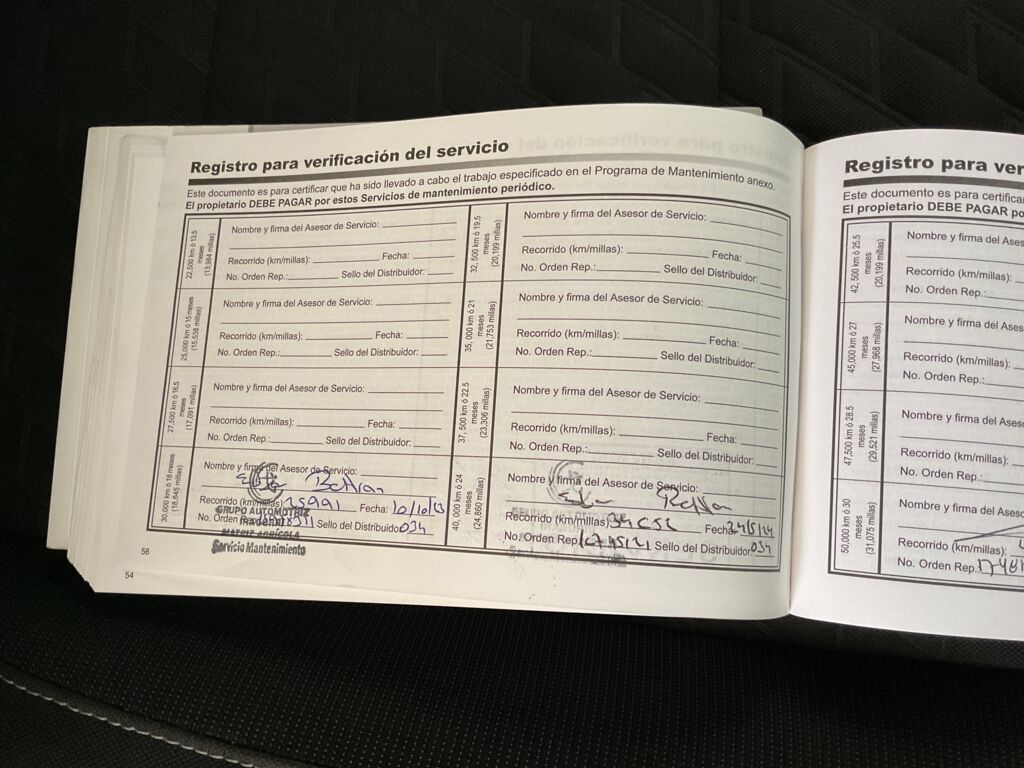 Registro para verificación del servicio
Este documento es para certificar que ha sido llevado a cabo el trabajo especificado en el Programa de Mantenimiento anexo.
El propietario DEBE PAGAR por estos Servicios de mantenimiento periódico.
22,500 km ó 13.5 meses (13,984 millas)
Nombre y firma del Asesor de Servicio:
Recorrido (km/millas): Fecha:
No. Orden Rep.: Sello del Distribuidor:
25,000 km ó 15 meses (15,538 millas)
Nombre y firma del Asesor de Servicio:
Recorrido (km/millas): Fecha:
No. Orden Rep.: Sello del Distribuidor:
27,500 km ó 16.5 meses (17,091 millas)
Nombre y firma del Asesor de Servicio:
Recorrido (km/millas): Fecha:
No. Orden Rep.: Sello del Distribuidor:
30,000 km ó 18 meses (18,645 millas)
Nombre y firma del Asesor de Servicio:
Recorrido (km/millas) Fecha:
No. Orden Sello del Distribuidor 034
GRUPO AUTOMOTRIZ
Servicio Mantenimiento
32, 500 km ó 19.5 meses (20,199 millas)
Nombre y firma del Asesor de Servicio:
Recorrido (km/millas): Fecha:
No. Orden Rep.: Sello del Distribuidor:
35, 000 km ó 21 meses (21,753 millas)
Nombre y firma del Asesor de Servicio:
Recorrido (km/millas): Fecha:
No. Orden Rep.: Sello del Distribuidor:
37, 500 km ó 22.5 meses (23,306 millas)
Nombre y firma del Asesor de Servicio:
Recorrido (km/millas): Fecha:
No. Orden Rep.: Sello del Distribuidor:
40, 000 km ó 24 meses (24,860 millas)
Nombre y firma del Asesor de Servicio:
Recorrido (km/millas)
No. Orden Rep. Sello del Distribuidor: 034
56
54
Registro para ver
Este documento es para certifica
El propietario DEBE PAGAR po
42, 500 km ó 25.5 meses (20,199 millas)
Nombre y firma del Ases
Recorrido (km/millas):
No. Orden Rep.:
45,000 km ó 27 meses (27,968 millas)
Nombre y firma del Ases
Recorrido (km/millas):
No. Orden Rep.:
47,500 km ó 28.5 meses (29,521 millas)
Nombre y firma del Ases
Recorrido (km/millas):
No. Orden Rep.:
50,000 km ó 30 meses (31,075 millas)
Nombre y firma del Ases
Recorrido (km/millas)
No. Orden Rep.